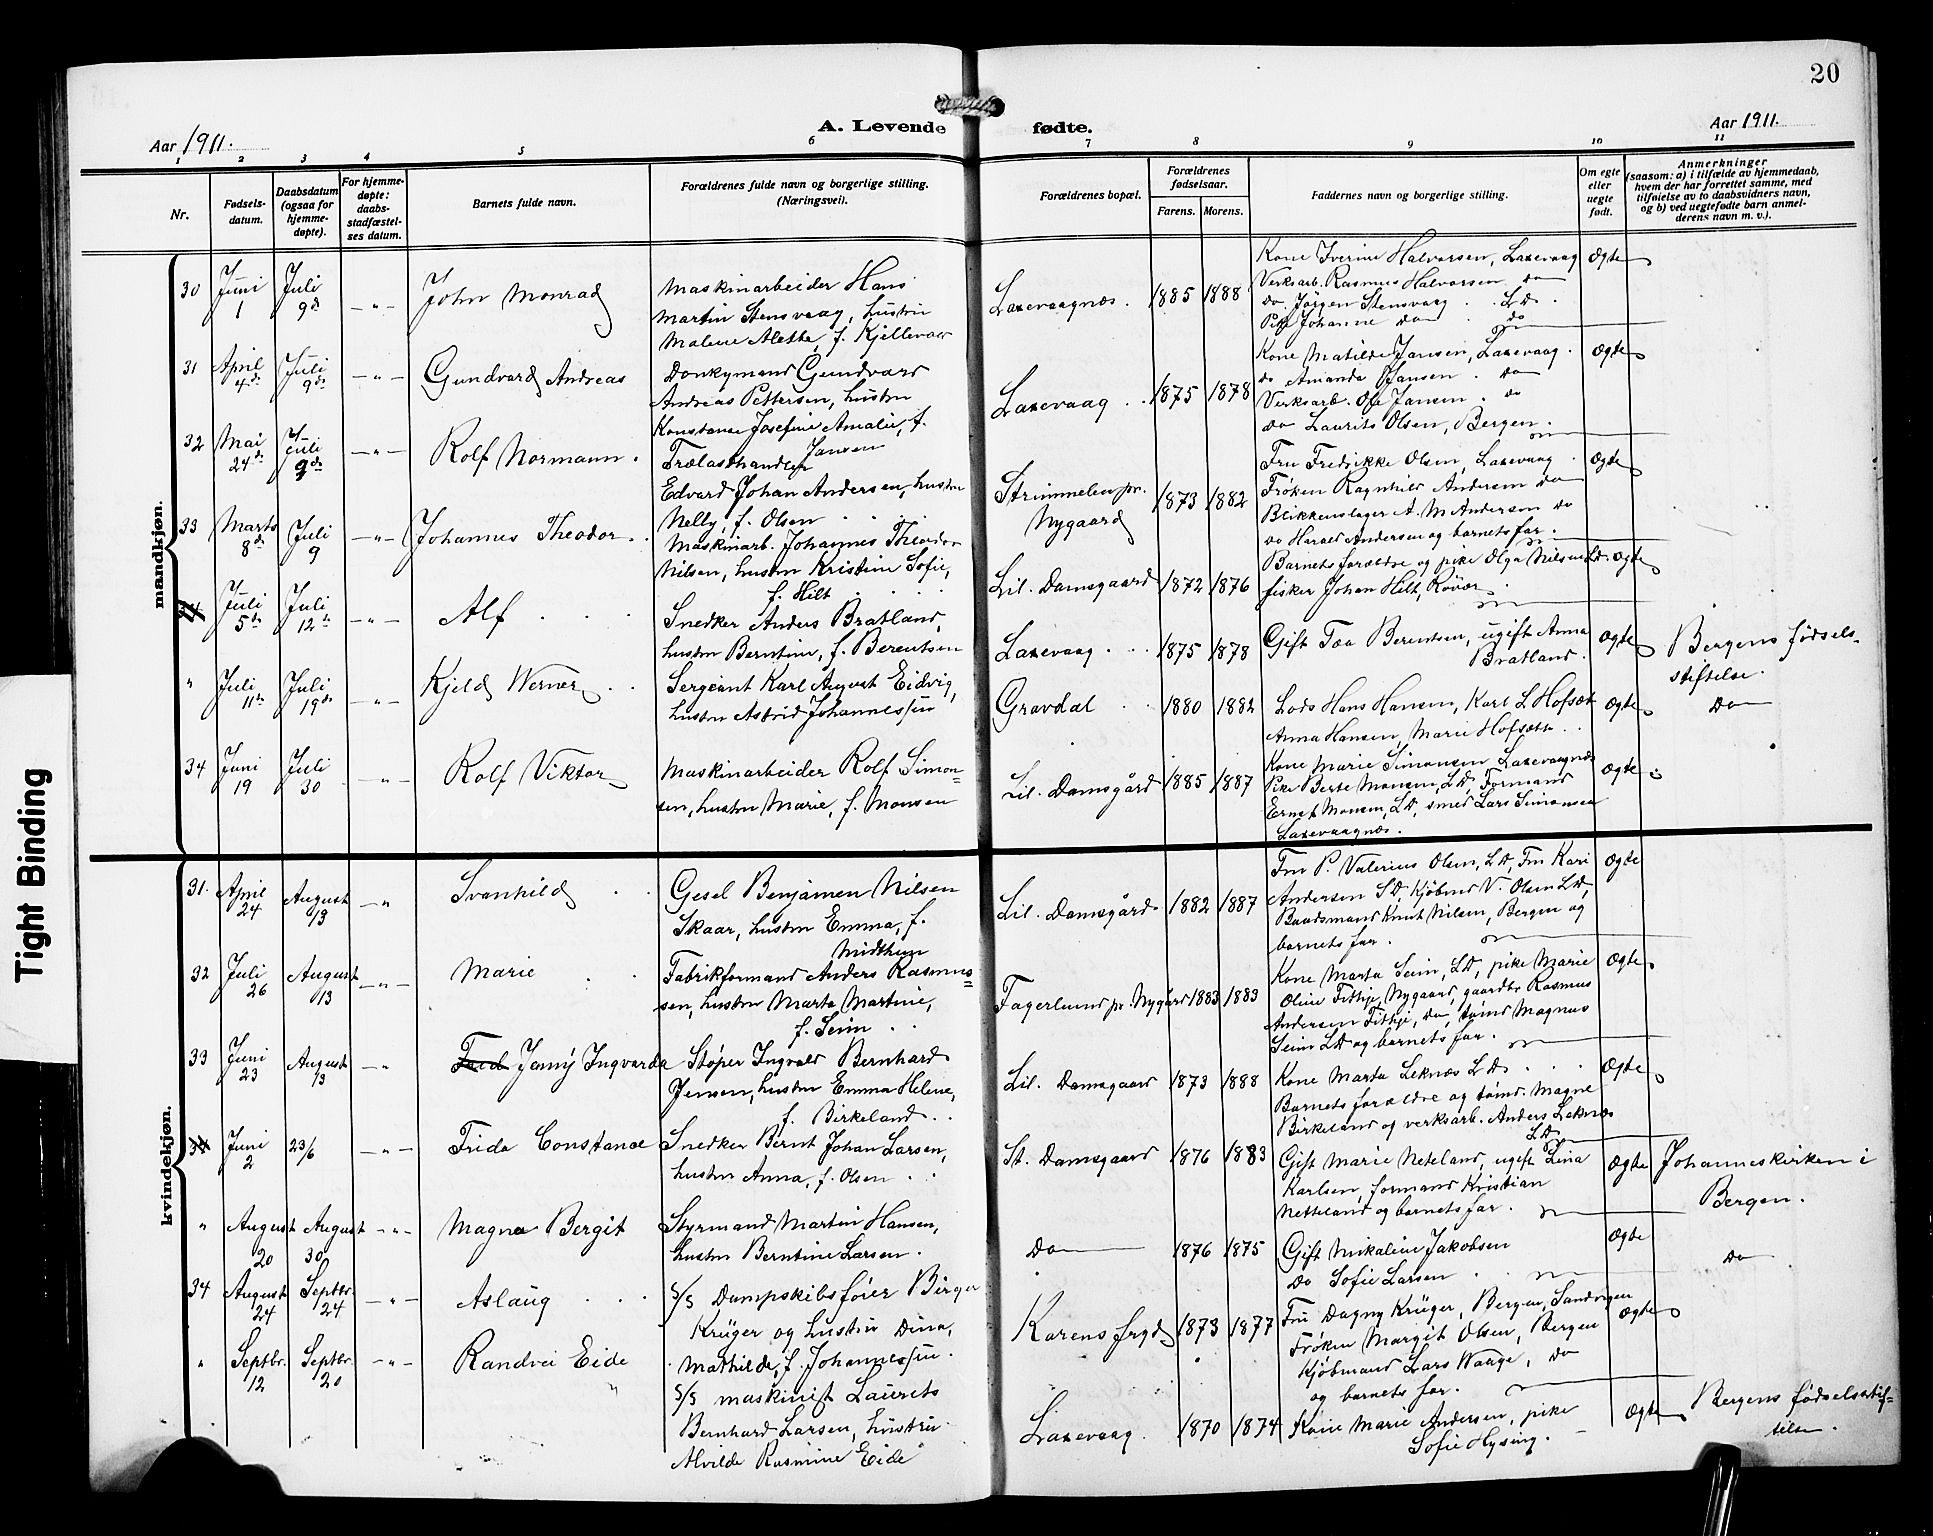 20
Aar 1911.
A. Levende fødte.
Aar 1911.
1 2 3 4 5 6 7 8 9 10 11
Nr.
Fødsels-
datum.
Daabsdatum
(ogsaa for
hjemme-
døpte).
For hjemme-
døpte:
daabs-
stadfæstel-
ses datum.
Barnets fulde navn.
Forældrenes fulde navn og borgerlige stilling.
(Næringsvei).
Forældrenes bopæl.
Forældrenes
fødselsaar.
Farens. Morens.
Faddernes navn og borgerlige stilling.
Om egte
eller
uegte
født.
Anmerkninger
(saasom: a) i tilfælde av hjemmedaab,
hvem der har forrettet samme, med
tilføielse av to daabsvidners navn,
og b) ved uegtefødte barn anmel-
derens navn m. v.).
mandkjøn.
30 Juni 1 Juli 9de — " — John Monrad
Maskinarbeider Hans
Martin Stensvaag, hustru
Malene Alette, f. Kjellevær
Laxevaagnes. 1885 1888
Kone Iverine Halvorsen, Laxevaag
Verksarb. Rasmus Halvorsen do
do Jørgen Stensvaag . . LD.
Pige Johanne do . do
Ægte
31 April 4de Juli 9de — " — Gundvard Andreas
Donkymand Gundvard
Andreas Pettersen, hustru
Konstanse Josefine Amalie, f.
Jansen
Laxevaag . . 1875 1878
Kone Matilde Jansen, Laxevaag.
do Amanda Jansen . do
Verksarb. Ole Jansen . do
do Laurits Olsen, Bergen.
Ægte
32 Mai 24de Juli 9de — " — Rolf Normann.
Trælasthandler
Edvard Johan Andersen, hustru
Nelly, f. Olsen
Strimmelen pr.
Nygaard
1873 1882
Fru Fredrikke Olsen, Laxevaag
Frøken Ragnhild Andersen do
Blikkenslager A. M Andersen do
do Harald Andersen og barnets far.
Ægte
33 Marts 8de Juli 9 — " — Johannes Theodor.
Maskinarb. Johannes Theodor
Nilsen, hustru Kristine Sofie,
f. Hilt
Lil. Damsgaard 1872 1876
Barnets forældre og pike Olga Nilsen LD.
fisker Johan Hilt, Røvær
Ægte
34 Juli 5te Juli 12te — " — Alf
Snedker Anders Bratland,
hustru Berntine, f. Berentsen
Laxevaag . . . 1875 1878
Gift Tea Berentsen, ugift Anna
Bratland.
Ægte
Bergens fødsels-
stiftelse.
" Juli 11te Juli 19de — " — Kjeld Werner
Sergeant Karl August Eidvig,
hustru Astrid Johannessen
Gravdal 1880 1882
Lods Hans Hansen, Karl L Hofsæt
Anna Hansen, Marie Hofsætt
Ægte
Do
34 Juni 19 Juli 30 — " — Rolf Viktor
Maskinarbeider Rolf Simon=
sen, hustru Marie, f. Monsen
Lil. Damsgård 1885 1887
Kone Marie Simonsen Laxevaagnes
Pike Berte Monsen, LD, Formand
Ernst Monsen, LD, smed Lars Simonsen
Laxevaagnes.
Ægte
kvindekjøn.
31. April 24 August 13 — " Svanhild
Gesel Benjamen Nilsen
Skaar, hustru Emma, f.
Midthun
Lil. Damsgård 1882 1887
Fru P. Valerius Olsen, LD, Fru Kari
Andersen SD, Kjøbmd V. Olsen LD,
Baadsmand Knut Nilsen, Bergen og
barnets far.
Ægte
32 Juli 26 August 13 — " — Marie
Fabrikformand Anders Rasmus=
sen, hustru Marta Martine,
f. Seim
Fagerlund pr. Nygård 1883 1883
Kone Marta Seim, LD, pike Marie
Oline Fithje, Nygaard, gaardbr Rasmus
Andersen Fithje, do, tømd Magnus
Seim LD og barnets far.
Ægte
33 Juni 23 August 13 — " Jenny Ingvarda
Støper Ingvald Bernhard
Jensen, hustru Emma Helene,
f. Birkeland
Lil. Damsgaard 1873 1888
Kone Marta Leknæs LD
Barnets forældre og tømd. Magne
Birkeland og verksarb. Anders Leknæs
LD
Ægte
34 Juni 2 23/6 — " — Frida Constance
Snedker Bernt Johan Larsen,
hustru Anna, f. Olsen
St. Damsgaard 1876 1883
Gift Marie Neteland, ugift Lina
Karlsen, formand Kristian
Netteland og barnets far.
Ægte
Johanneskirken i
Bergen.
" August 20 August 30 — " — Magna Bergit
Styrmand Martin Hansen,
hustru Berntine Larsen.
Do 1876 1875
Gift Mikaline Jakobsen
Do Sofie Larsen
Ægte
Do
34 August 24 Septbr. 24 — " — Aslaug
S/S Dampskibsfører Birger
Krüger og hustru Dina,
Mathilde, f. Johannessen.
Karensfryd 1873 1877
Fru Dagny Krüger, Bergen, Sandvigen
Frøken Margit Olsen, Bergen
Kjøbmand Lars Waage, do
og barnets far.
Ægte
" Septbr. 12 Septbr. 20 — " — Randvei Eide
S/S maskinist Laurits
Bernhard Larsen, hustru
Alvilde Rasmine Eide
Laxevaag. 1870 1874
Kone Marie Andersen, pike
Sofie Hysing.
Ægte
Bergens fødselsstif-
telse.
Tight Binding